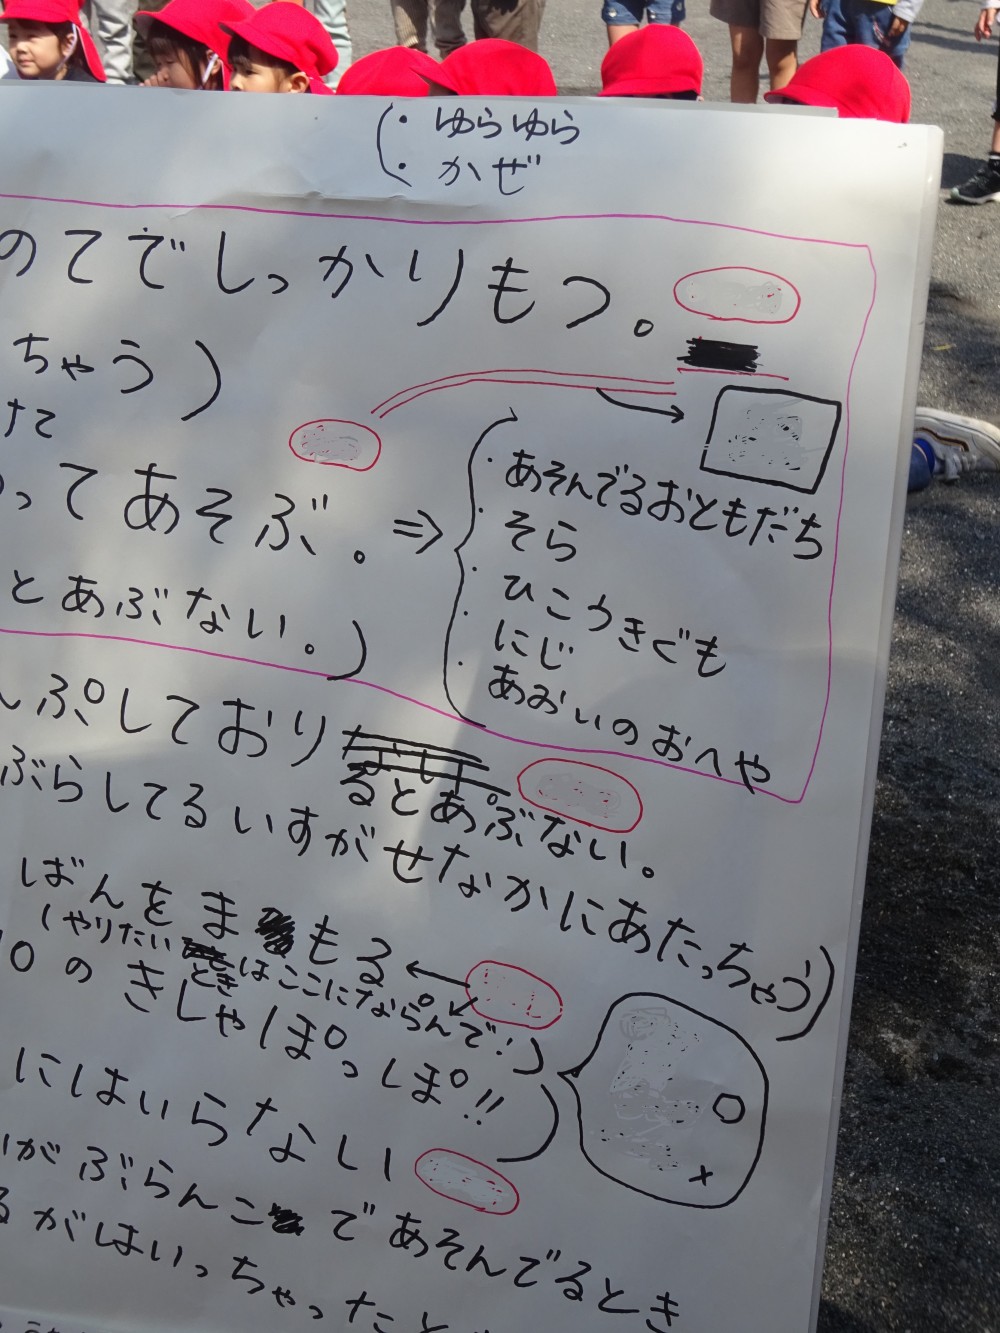 ・ゆらゆら
・かぜ
のてでしっかりもつ。
ちゃう)
けて
ってあそぶ。⇒
・あそんでるおともだち
・そら
・ひこうきぐも
・にじ
・あおいのおへや
とあぶない。)
ぷしており
るとあぶない。
ぶらしてるいすがせなかにあたっちゃう)
ばんをまもる
(やりたいときはここにならんで!)
10のきしゃぽっぽ!!
にはいらない
がぶらんこであそんでるとき
るがはいっちゃったと